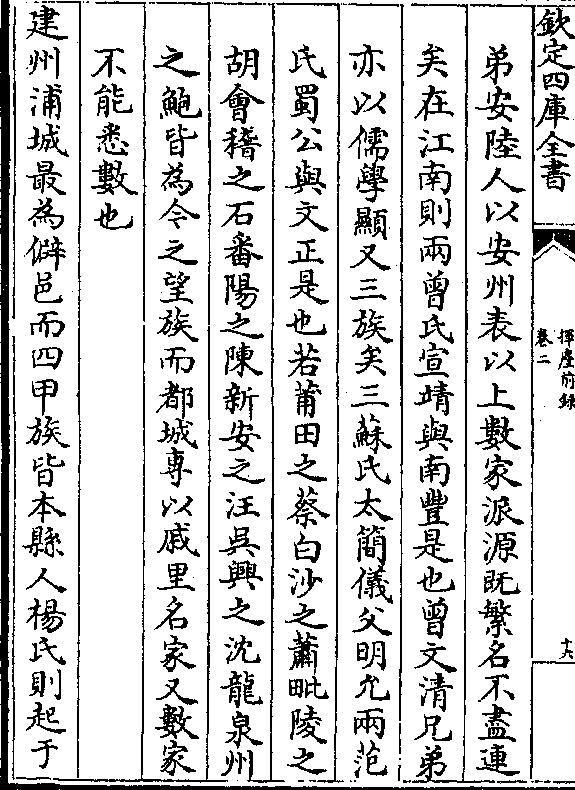 欽定四庫全書
揮麈前録
卷二
十六
弟安陸人以安州表以上數家派源既繁名不盡連
矣在江南則兩曾氏宣靖與南豐是也曾文清兄弟
亦以儒學顯又三族矣三蘇氏太簡儀父明允兩范
氏蜀公與文正是也若莆田之蔡白沙之蕭毗陵之
胡會稽之石番陽之陳新安之汪吳興之沈龍泉州
之鮑皆為今之望族而都城專以戚里名家又數家
不能悉數也
建州浦城最為僻邑而四甲族皆本縣人楊氏則起于